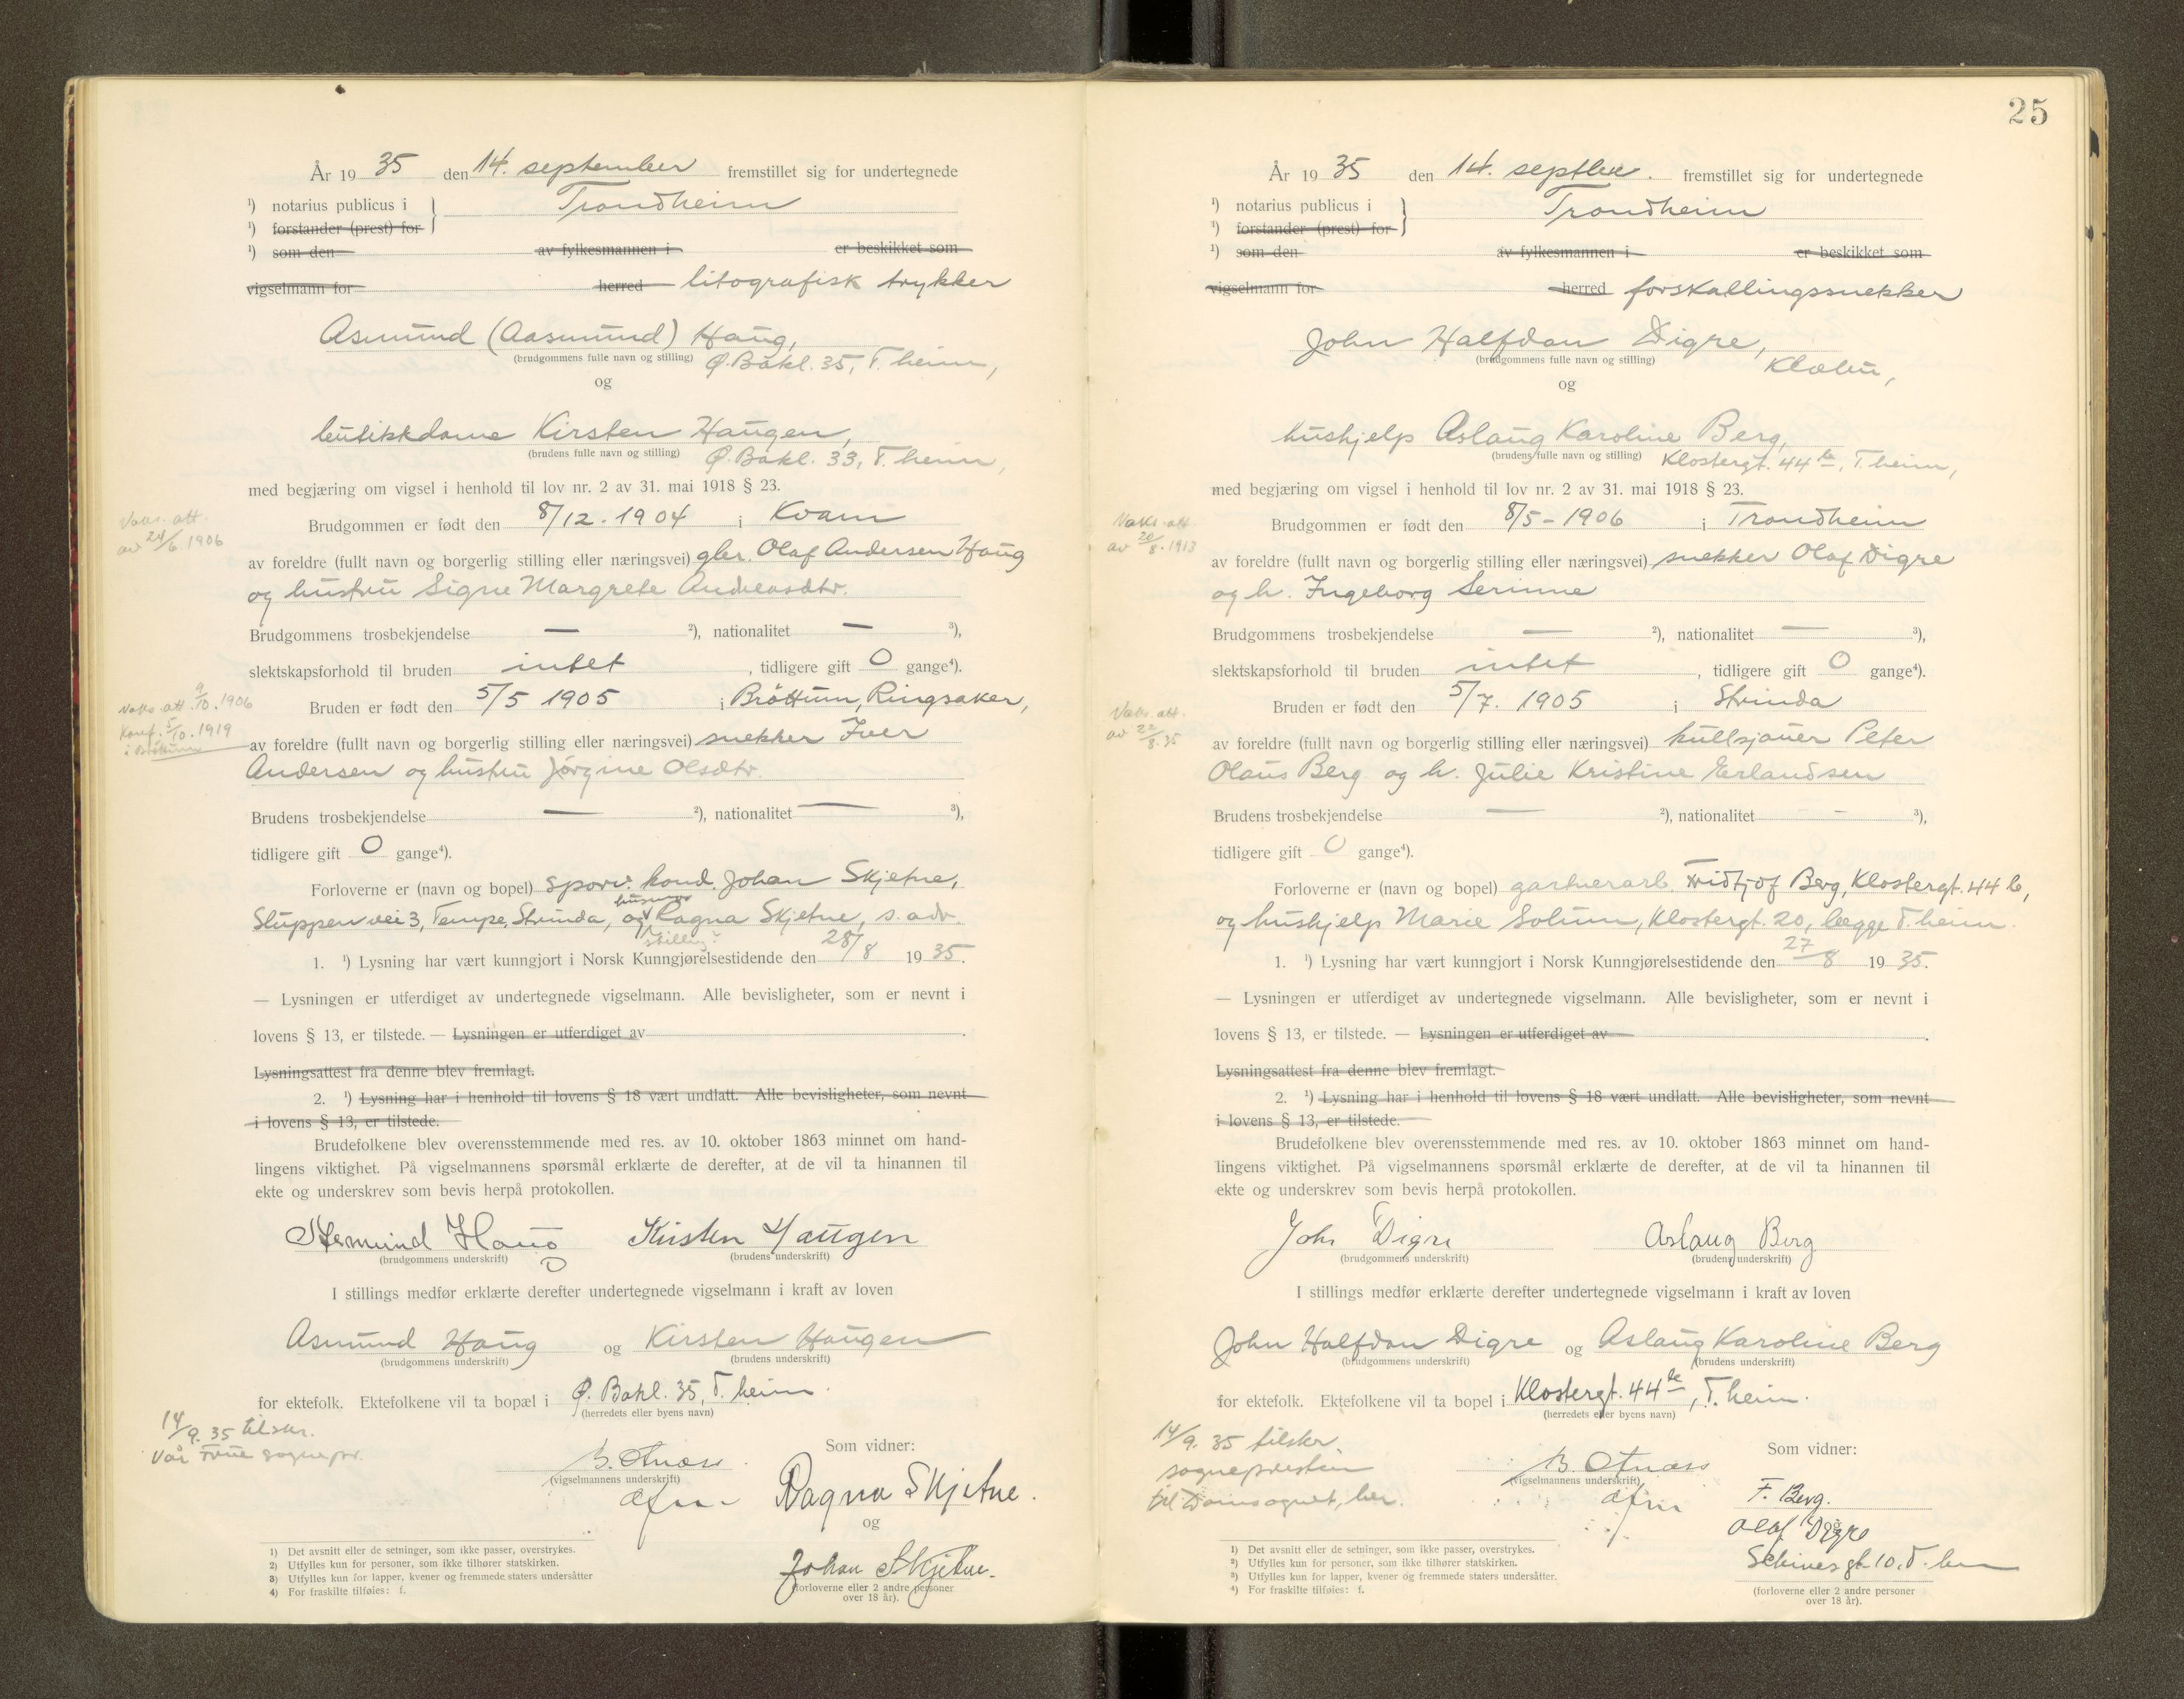 År 19 35 den 14. september fremstillet sig for undertegnede
¹) notarius publicus i Trondheim
¹) forstander (prest) for
¹) som den av fylkesmannen i er beskikket som
vigselmann for herred litografisk trykker
Asmund (Aasmund) Haug,
(brudgommens fulle navn og stilling) Ø. Bakl. 35, T.heim,
og
butikkdame Kirsten Haugen,
(brudens fulle navn og stilling) Ø. Bakl. 33, T.heim,
med begjæring om vigsel i henhold til lov nr. 2 av 31. mai 1918 § 23.
Vaks. att.
av 24/6. 1906
Brudgommen er født den 8/12. 1904 i Kvam
av foreldre (fullt navn og borgerlig stilling eller næringsvei) gbr. Olaf Andersen Haug
og hustru Signe Margrete Andreasdtr.
Brudgommens trosbekjendelse — ²), nationalitet — ³),
slektskapsforhold til bruden intet, tidligere gift 0 gange⁴).
Vaks. att. 9/10. 1906
Konf. 5/10. 1919
i Bröttum
Bruden er født den 5/5 1905 i Bröttum, Ringsaker,
av foreldre (fullt navn og borgerlig stilling eller næringsvei) snekker Iver
Andersen og hustru Jörgine Olsdtr.
Brudens trosbekjendelse — ²), nationalitet — ³),
tidligere gift 0 gange⁴).
Forloverne er (navn og bopel) sporv. kond. Johan Skjetne,
Sluppenvei 3, Tempe, Strinda, og husmor Ragna Skjetne, s. adr.
stilling?
1. ¹) Lysning har vært kunngjort i Norsk Kunngjørelsestidende den 28/8 19 35.
— Lysningen er utferdiget av undertegnede vigselmann. Alle bevisligheter, som er nevnt i
lovens § 13, er tilstede. — Lysningen er utferdiget av .
Lysningsattest fra denne blev fremlagt.
2. ¹) Lysning har i henhold til lovens § 18 vært undlatt. Alle bevisligheter, som nevnt
i lovens § 13, er tilstede.
Brudefolkene blev overensstemmende med res. av 10. oktober 1863 minnet om hand-
lingens viktighet. På vigselmannens spørsmål erklærte de derefter, at de vil ta hinannen til
ekte og underskrev som bevis herpå protokollen.
Asmund Haug Kirsten Haugen
(brudgommens underskrift) (brudens underskrift)
I stillings medfør erklærte derefter undertegnede vigselmann i kraft av loven
Asmund Haug og Kirsten Haugen
(brudgommens underskrift) (brudens underskrift)
for ektefolk. Ektefolkene vil ta bopæl i Ø. Bakl. 35, T.heim.
(herredets eller byens navn)
14/9. 35 tilskr.
Vår Frue sognepr.
Som vidner:
(vigselmannens underskrift)
Ragna Skjetne.
og
Johan Skjetne.
(forloverne eller 2 andre personer
over 18 år).
1) Det avsnitt eller de setninger, som ikke passer, overstrykes.
2) Utfylles kun for personer, som ikke tilhører statskirken.
3) Utfylles kun for lapper, kvener og fremmede staters undersåtter
4) For fraskilte tilføies: f.
25
År 19 35 den 14. septbr. fremstillet sig for undertegnede
¹) notarius publicus i Trondheim
¹) forstander (prest) for
¹) som den av fylkesmannen i er beskikket som
vigselmann for herred forskallingssnekker
John Halfdan Digre,
(brudgommens fulle navn og stilling) Klæbu,
og
hushjelp Aslaug Karoline Berg,
(brudens fulle navn og stilling) Klostergt. 44 b, T.heim,
med begjæring om vigsel i henhold til lov nr. 2 av 31. mai 1918 § 23.
Vaks. att.
av 20/8. 1913
Brudgommen er født den 8/5 - 1906 i Trondheim
av foreldre (fullt navn og borgerlig stilling eller næringsvei) snekker Olaf Digre
og h. Ingeborg Serinne
Brudgommens trosbekjendelse — ²), nationalitet — ³),
slektskapsforhold til bruden intet, tidligere gift 0 gange⁴).
Vaks. att.
av 22/8. 35
Bruden er født den 5/7. 1905 i Strinda
av foreldre (fullt navn og borgerlig stilling eller næringsvei) kullsjauer Peter
Olaus Berg og h. Julie Kristine Erlandsen
Brudens trosbekjendelse — ²), nationalitet — ³),
tidligere gift 0 gange⁴).
Forloverne er (navn og bopel) gartnerarb. Fridtjof Berg, Klostergt. 44 b,
og hushjelp Marie Solum, Klostergt. 20, begge T.heim.
1. ¹) Lysning har vært kunngjort i Norsk Kunngjørelsestidende den 27/8 19 35.
— Lysningen er utferdiget av undertegnede vigselmann. Alle bevisligheter, som er nevnt i
lovens § 13, er tilstede. — Lysningen er utferdiget av .
Lysningsattest fra denne blev fremlagt.
2. ¹) Lysning har i henhold til lovens § 18 vært undlatt. Alle bevisligheter, som nevnt
i lovens § 13, er tilstede.
Brudefolkene blev overensstemmende med res. av 10. oktober 1863 minnet om hand-
lingens viktighet. På vigselmannens spørsmål erklærte de derefter, at de vil ta hinannen til
ekte og underskrev som bevis herpå protokollen.
John Digre Aslaug Berg
(brudgommens underskrift) (brudens underskrift)
I stillings medfør erklærte derefter undertegnede vigselmann i kraft av loven
John Halfdan Digre og Aslaug Karoline Berg
(brudgommens underskrift) (brudens underskrift)
for ektefolk. Ektefolkene vil ta bopel i Klostergt. 44 b, T.heim.
(herredets eller byens navn)
14/9. 35 tilskr.
sognepresten
til Domsognet, her.
Som vidner:
(vigselmannens underskrift)
F. Berg.
og
Olaf Digre
gt. 10, T.hm
(forloverne eller 2 andre personer
over 18 år).
1) Det avsnitt eller de setninger, som ikke passer, overstrykes.
2) Utfylles kun for personer, som ikke tilhører statskirken.
3) Utfylles kun for lapper, kvener og fremmede staters undersåtter.
4) For fraskilte tilføies: f.